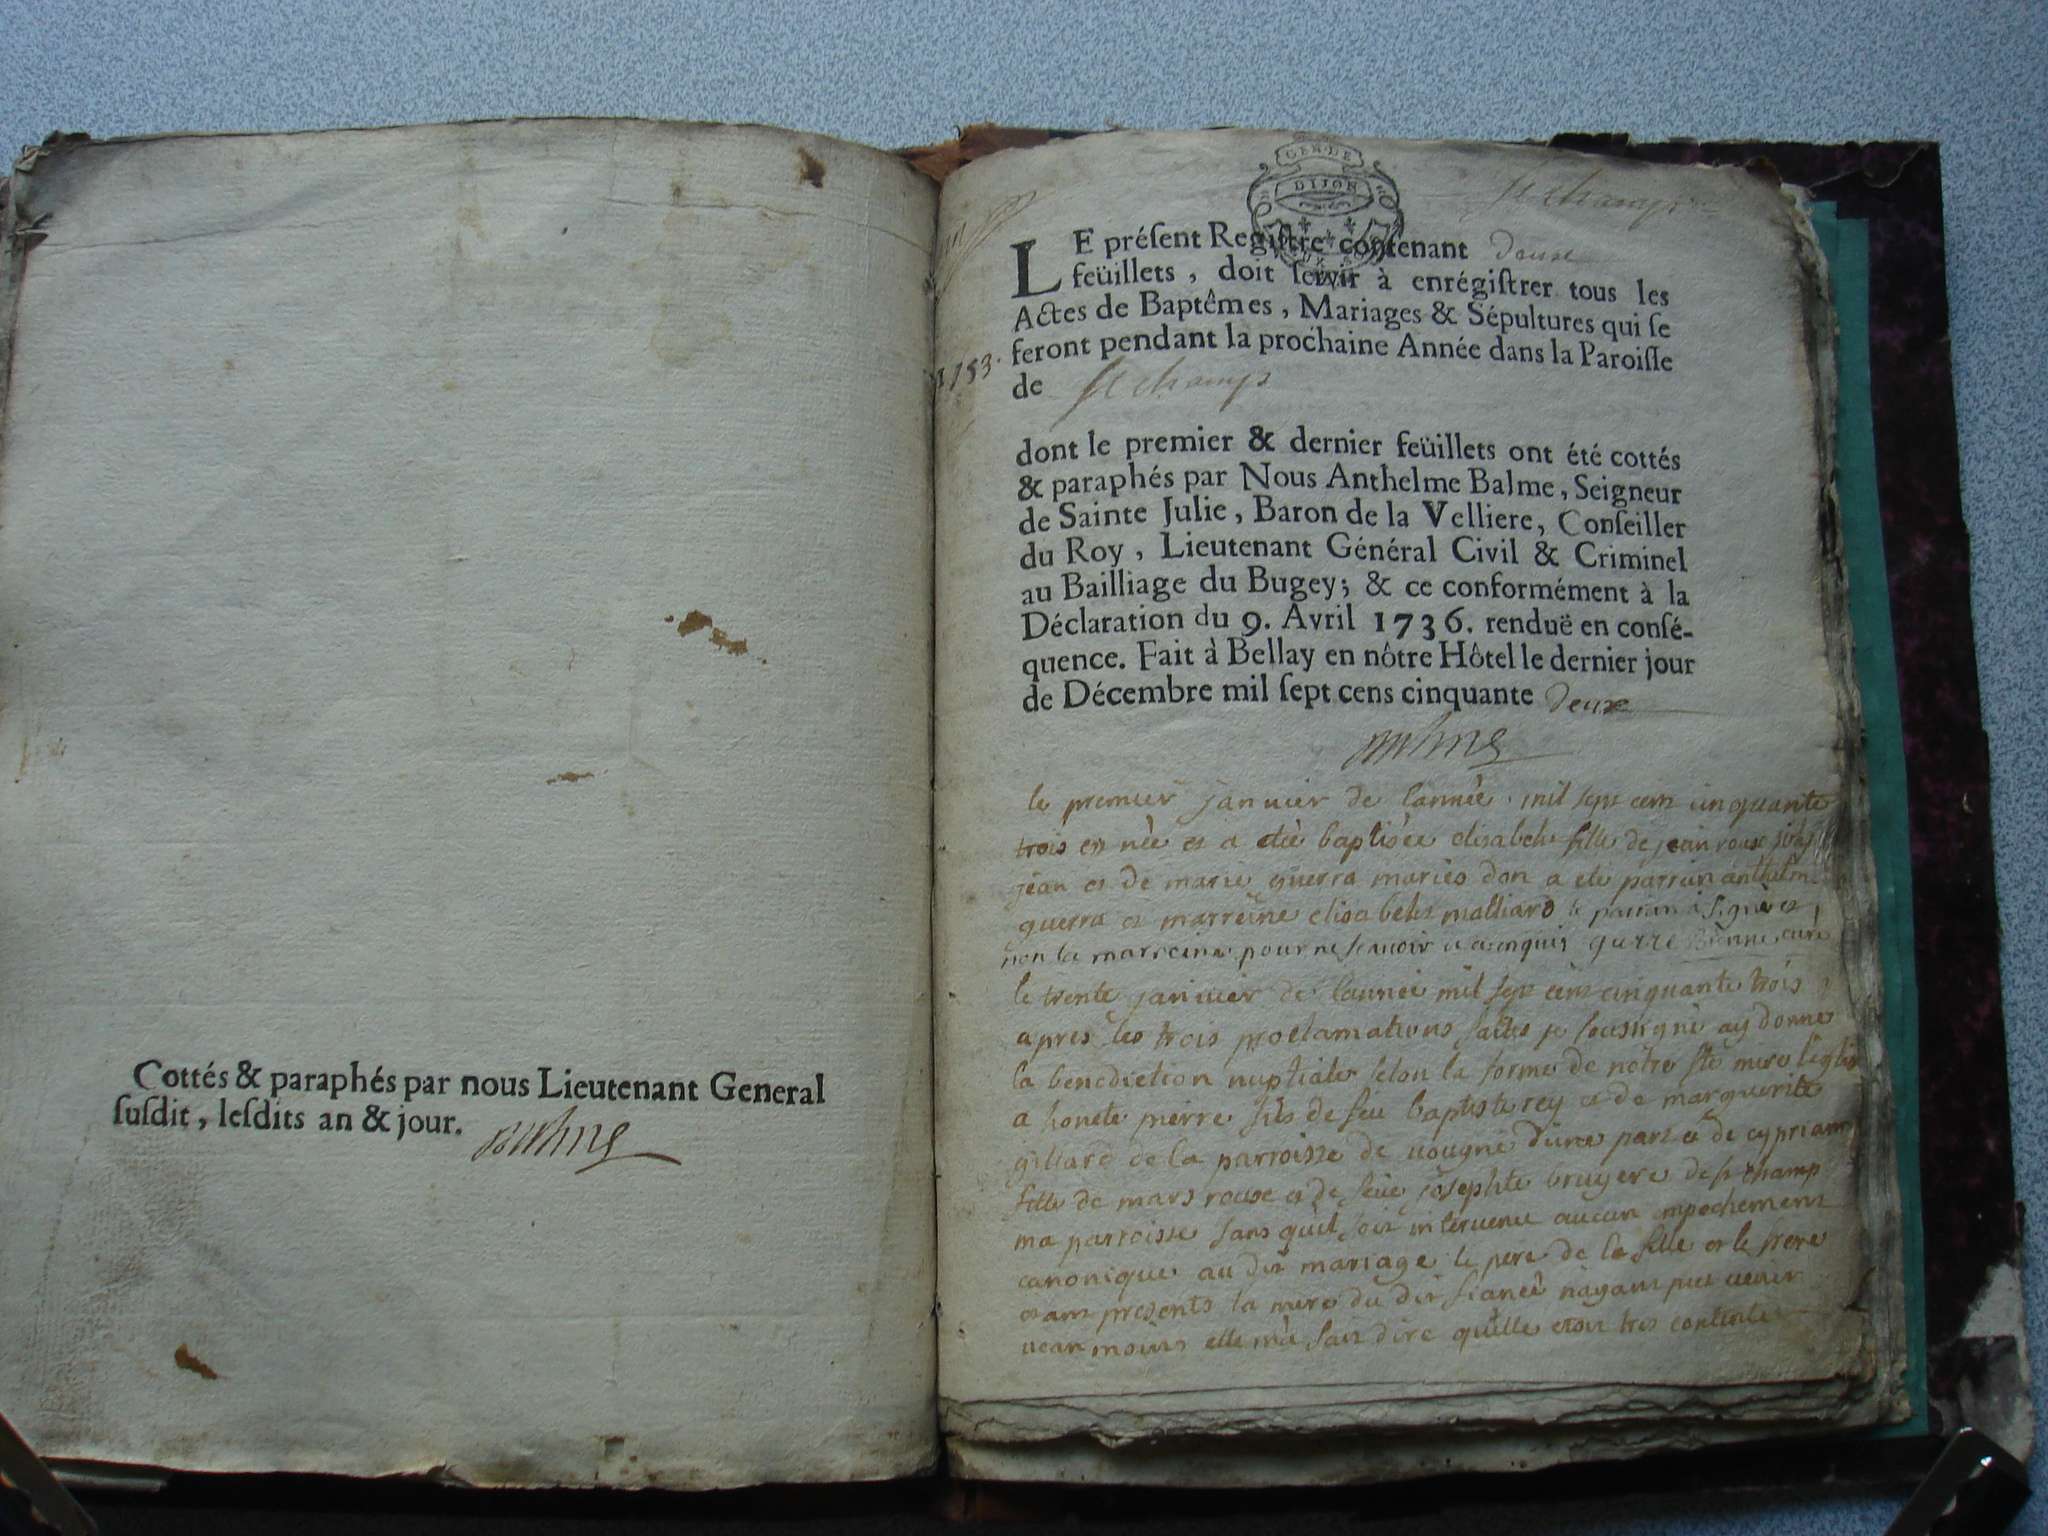 Cottés & paraphés par nous Lieutenant General
ſuſdit, leſdits an & jour.
GEN. DE
DIJON
St champ
LE préſent Regiſtre contenant douze
feüillets, doit ſervir à enrégiſtrer tous les
Actes de Baptêmes, Mariages & Sépultures qui ſe
feront pendant la prochaine Année dans la Paroiſſe
1753.
de St champ
dont le premier & dernier feüillets ont été cottés
& paraphés par Nous Anthelme Balme, Seigneur
de Sainte Julie, Baron de la Velliere, Conſeiller
du Roy, Lieutenant Général Civil & Criminel
au Bailliage du Bugey; & ce conformément à la
Déclaration du 9. Avril 1736. renduë en conſé-
quence. Fait à Bellay en nôtre Hôtel le dernier jour
de Décembre mil ſept cens cinquante deux
le premier janvier de lannée mil sept cent cinquante
trois est née et a été baptisée elisabeth fille de jean roux
jean et de marie guerra mariés don a été parrain anthelme
guerra et marreine elisabeth malliard le parrain a signé et
non la marreine pour ne scavoir ce enquis gurre curé
le trente janvier de lannee mil sept cent cinquante trois
apres les trois proclamations faites je soussigné ay donné
la benediction nuptiale selon la forme de nôtre ste mere leglise
a honete pierre fils de feu baptiste rey et de marguerite
gilliard de la parroisse de vougne d'une part et de cyprianne
fille de mars roux et de feüe josephte bruyere de st champ
ma parroisse sans quil soit intervenu aucun empechement
canonique au dit mariage le pere de la fille et le frere
etant presents la mere du dit fiancé nayant peu venir
neanmoins elle m'a fait dire qu'elle etoit tres contente